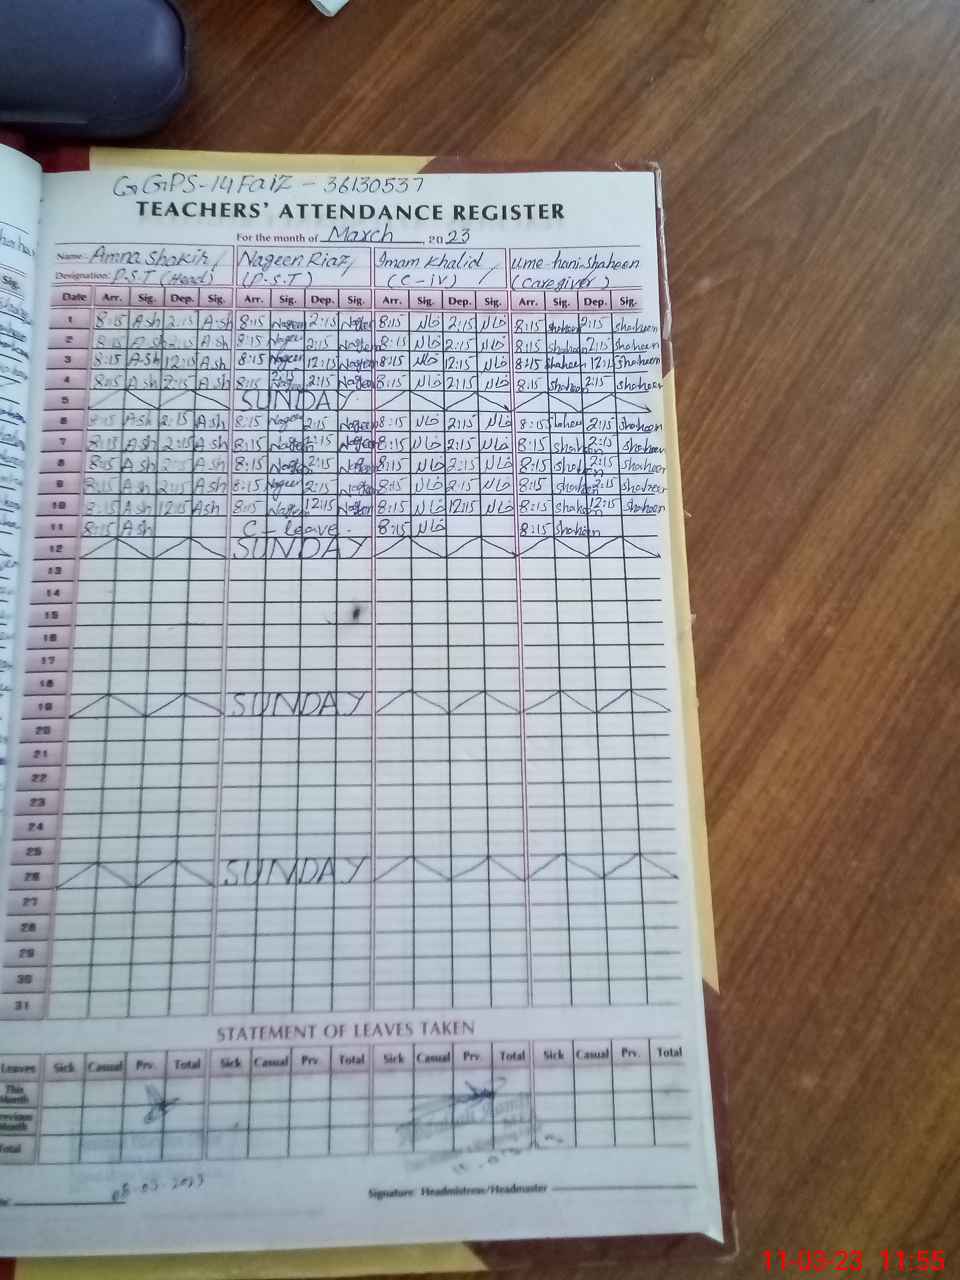 GGPS-14 Faiz - 36130537
TEACHERS' ATTENDANCE REGISTER
For the month of March, 2023
Name: Amna Shakir/ Nageen Riaz/ Imam Khalid / Ume-hani-Shaheen
Designation: P.S.T (Head) (P.S.T) (C-iv) (Caregiver)
Date Arr. Sig. Dep. Sig. Arr. Sig. Dep. Sig. Arr. Sig. Dep. Sig. Arr. Sig. Dep. Sig.
1 8:15 A.sh 2:15 A.sh 8:15 Nageen 2:15 Nageen 8:15 خالد 2:15 خالد 8:15 shaheen 2:15 shaheen
2 8:15 A.sh 2:15 A.sh 8:15 Nageen 2:15 Nageen 8:15 خالد 2:15 خالد 8:15 shaheen 2:15 shaheen
3 8:15 A.sh 12:15 A.sh 8:15 Nageen 12:15 Nageen 8:15 خالد 12:15 خالد 8:15 shaheen 12:15 shaheen
4 8:15 A.sh 2:15 A.sh 8:15 Nageen 2:15 Nageen 8:15 خالد 2:15 خالد 8:15 shaheen 2:15 shaheen
5 SUNDAY
6 8:15 A.sh 2:15 A.sh 8:15 Nageen 2:15 Nageen 8:15 خالد 2:15 خالد 8:15 shaheen 2:15 shaheen
7 8:15 A.sh 2:15 A.sh 8:15 Nageen 2:15 Nageen 8:15 خالد 2:15 خالد 8:15 shaheen 2:15 shaheen
8 8:15 A.sh 2:15 A.sh 8:15 Nageen 2:15 Nageen 8:15 خالد 2:15 خالد 8:15 shaheen 2:15 shaheen
9 8:15 A.sh 2:15 A.sh 8:15 Nageen 2:15 Nageen 8:15 خالد 2:15 خالد 8:15 shaheen 2:15 shaheen
10 8:15 A.sh 12:15 A.sh 8:15 Nageen 12:15 Nageen 8:15 خالد 12:15 خالد 8:15 shaheen 12:15 shaheen
11 8:15 A.sh C-leave. 8:15 خالد 8:15 Shaheen
12 SUNDAY
13
14
15
16
17
18
19 SUNDAY
20
21
22
23
24
25
26 SUNDAY
27
28
29
30
31
STATEMENT OF LEAVES TAKEN
Leaves Sick Casual Prv. Total Sick Casual Prv. Total Sick Casual Prv. Total Sick Casual Prv. Total
This Month
Previous Month
Total
08-03-2023
Signature: Headmistress/Headmaster
11-03-23 11:55